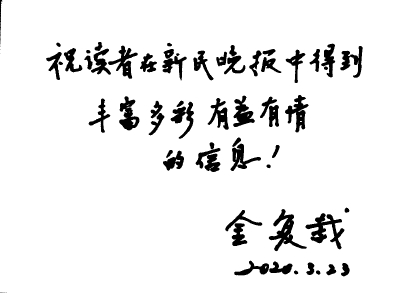 祝读者在新民晚报中得到
丰富多彩 有益有情
的信息!
金复载
2020.3.23